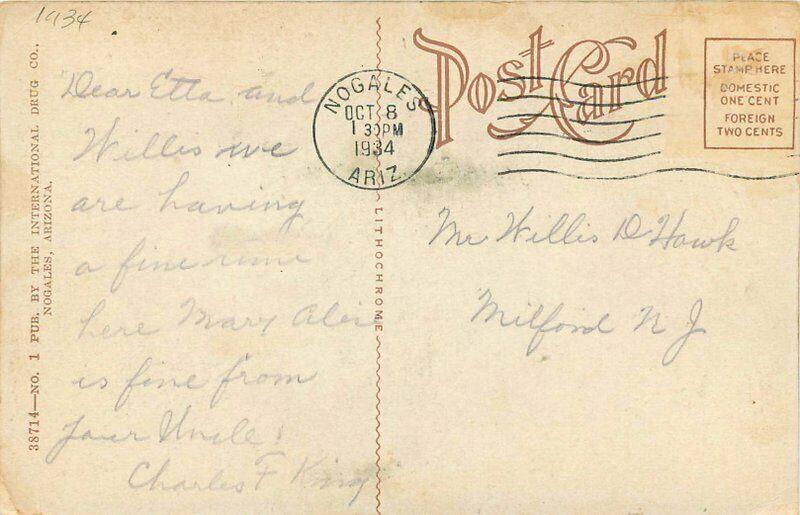 1934
38714—NO. 1 PUB. BY THE INTERNATIONAL DRUG CO.,
NOGALES, ARIZONA.
Dear Etta and
Willis we
are having
a fine time
here Mary Alice
is fine from
your Uncle,
Charles F King
LITHOCHROME
Post Card
NOGALES
OCT 8
1 30PM
1934
ARIZ.
PLACE
STAMP HERE
DOMESTIC
ONE CENT
FOREIGN
TWO CENTS
Mr Willis D Hawk
Milford N J